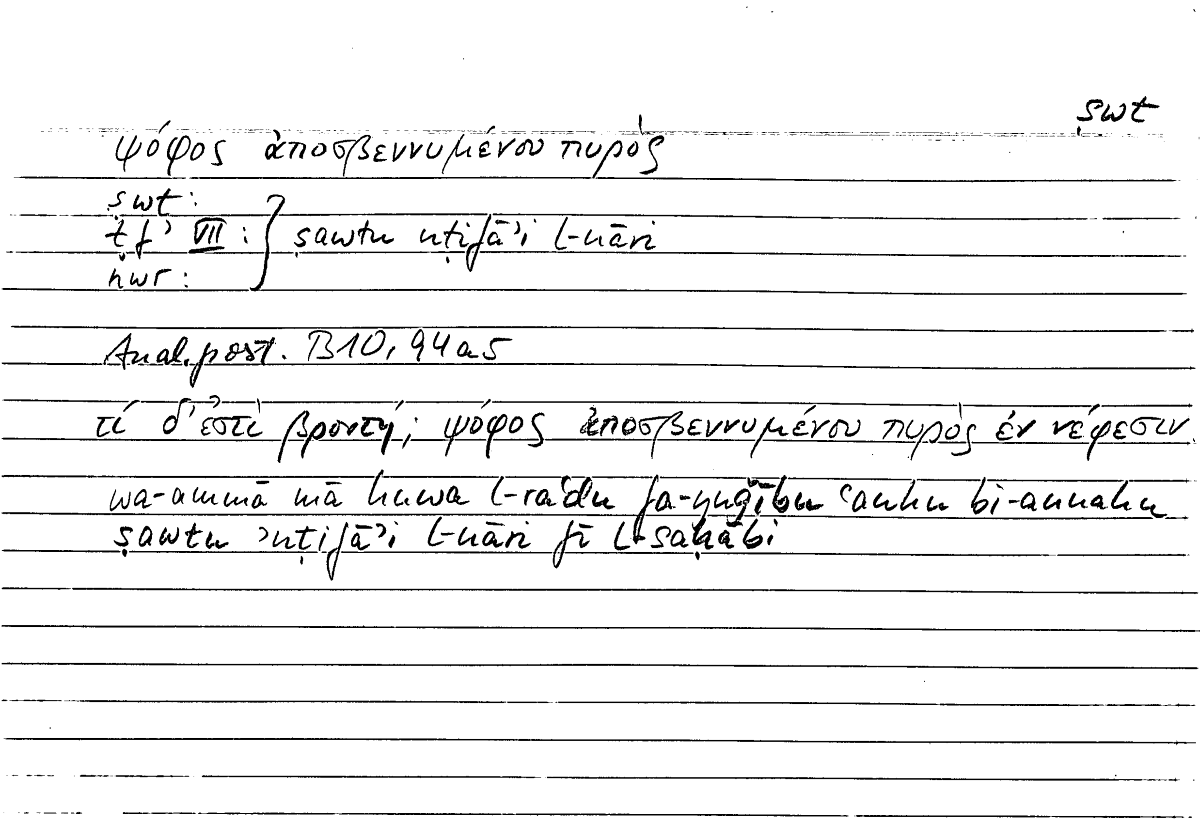 ṣwt
ψόφος ἀποσβεννυμένου πυρός
ṣwt :
ṭfʾ VII : } ṣawtu nṭifāʾi l-nāri
nwr :
Anal. post. B10, 94a5
τί δ' ἐστὶ βροντή; ψόφος ἀποσβεννυμένου πυρὸς ἐν νέφεσιν.
wa-ammā mā huwa l-raʿdu fa-yuǧību ʿanhu bi-annahu
ṣawtu ʾnṭifāʾi l-nāri fī l-saḥābi